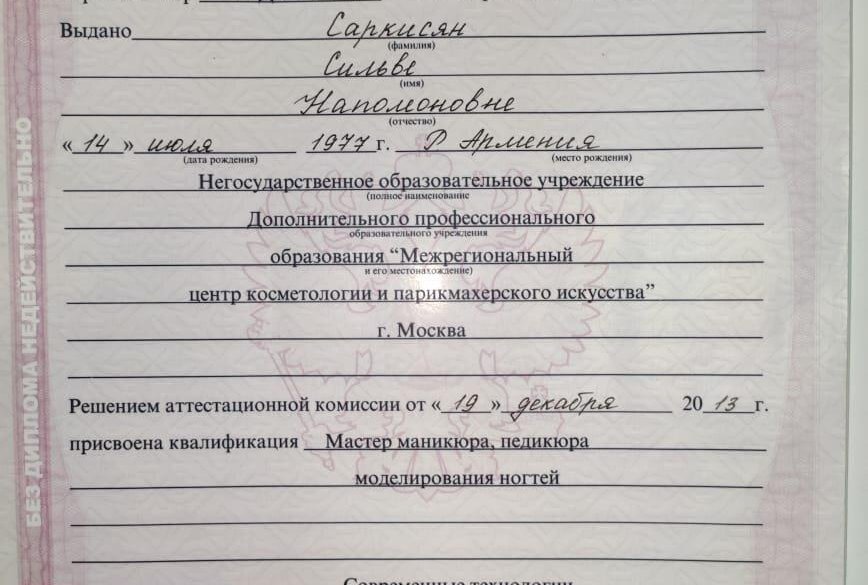 Выдано Саркисян
(фамилия)
Сильве
(имя)
Напомоновне
(отчество)
« 14 » июля 1977 г. Р Армения
(дата рождения) (место рождения)
Негосударственное образовательное учреждение
(полное наименование
Дополнительного профессионального
образовательного учреждения
образования “Межрегиональный
и его местонахождение)
центр косметологии и парикмахерского искусства”
г. Москва
Решением аттестационной комиссии от « 19 » декабря 20 13 г.
присвоена квалификация Мастер маникюра, педикюра
моделирования ногтей
Современные технологии
БЕЗ ДИПЛОМА НЕДЕЙСТВИТЕЛЬНО